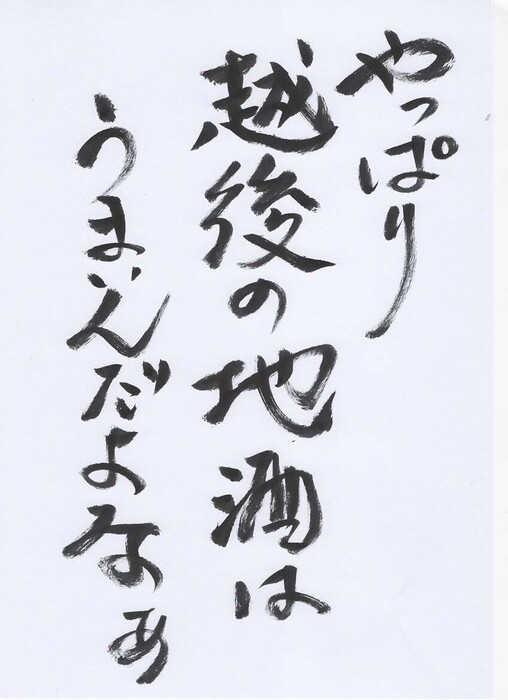 やっぱり
越後の地酒は
うまいんだよなぁ